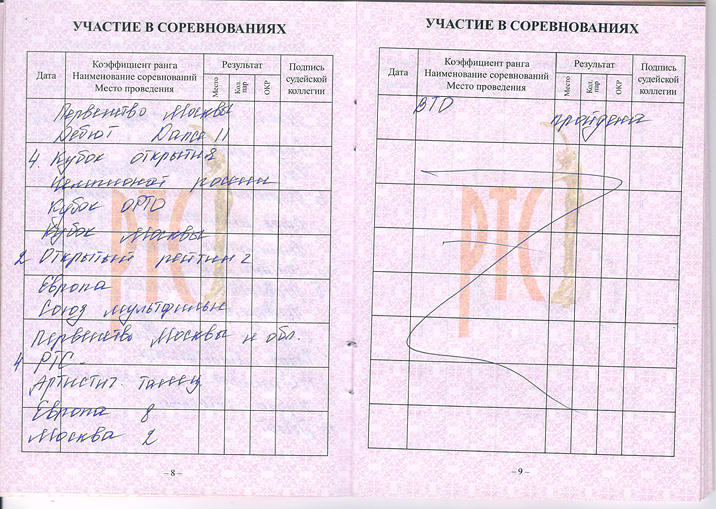 УЧАСТИЕ В СОРЕВНОВАНИЯХ
Дата
Коэффициент ранга
Наименование соревнований
Место проведения
Результат
Место
Кол. пар
ОКР
Подпись судейской коллегии
Первенство Москвы
Дебют Dance 11
4. Кубок открытия
Чемпионат россии
Кубок ОРТО
Кубок Москвы
2 Открытый рейтинг
Европа
Союз мультфильм
Первенство Москвы и обл.
4 РТС -
Артистич. танец
Европа 8
Москва 2
РТС
– 8 –
УЧАСТИЕ В СОРЕВНОВАНИЯХ
Дата
Коэффициент ранга
Наименование соревнований
Место проведения
Результат
Место
Кол. пар
ОКР
Подпись судейской коллегии
ВТО пройдена
РТС
– 9 –